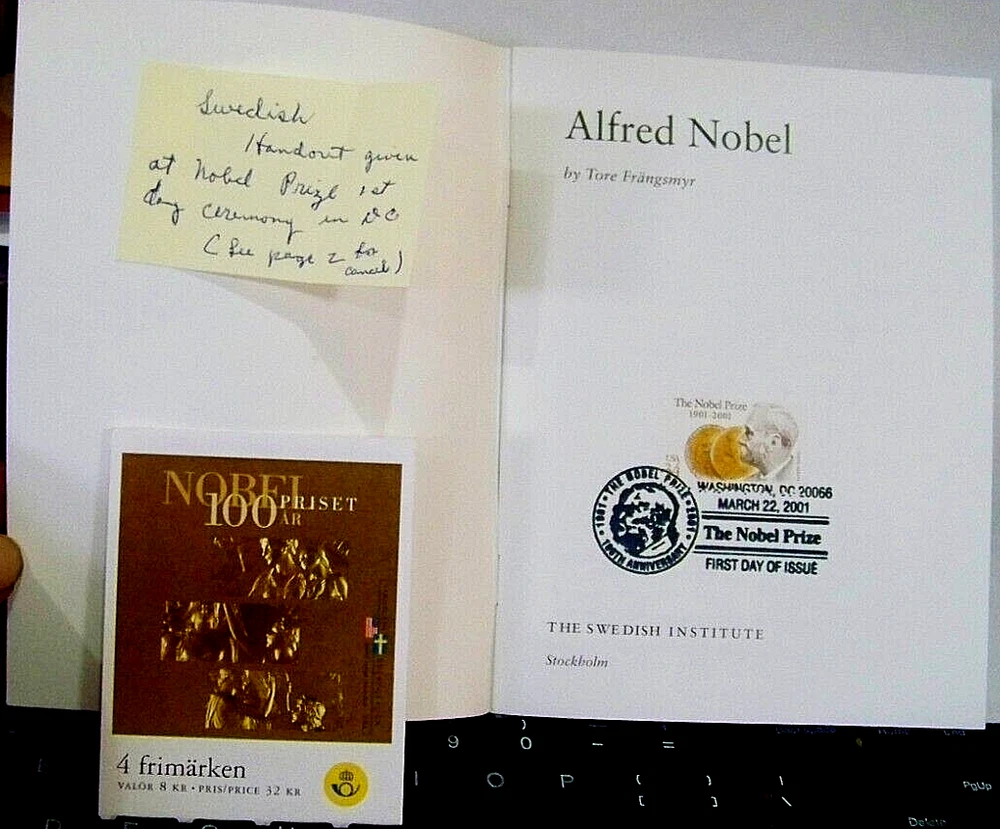 Swedish
Handout given
at Nobel Prize 1st
day ceremony in DC
(See page 2 for
cancel)
Alfred Nobel
by Tore Frängsmyr
The Nobel Prize
1901-2001
THE NOBEL PRIZE
1901 • 2001
100TH ANNIVERSARY
WASHINGTON, DC 20066
MARCH 22, 2001
The Nobel Prize
FIRST DAY OF ISSUE
THE SWEDISH INSTITUTE
Stockholm
NOBEL
100 PRISET
ÅR
4 frimärken
VALÖR 8 KR • PRIS/PRICE 32 KR
9 0 - =
I O P { }
[ ] \
PgUp
Delete